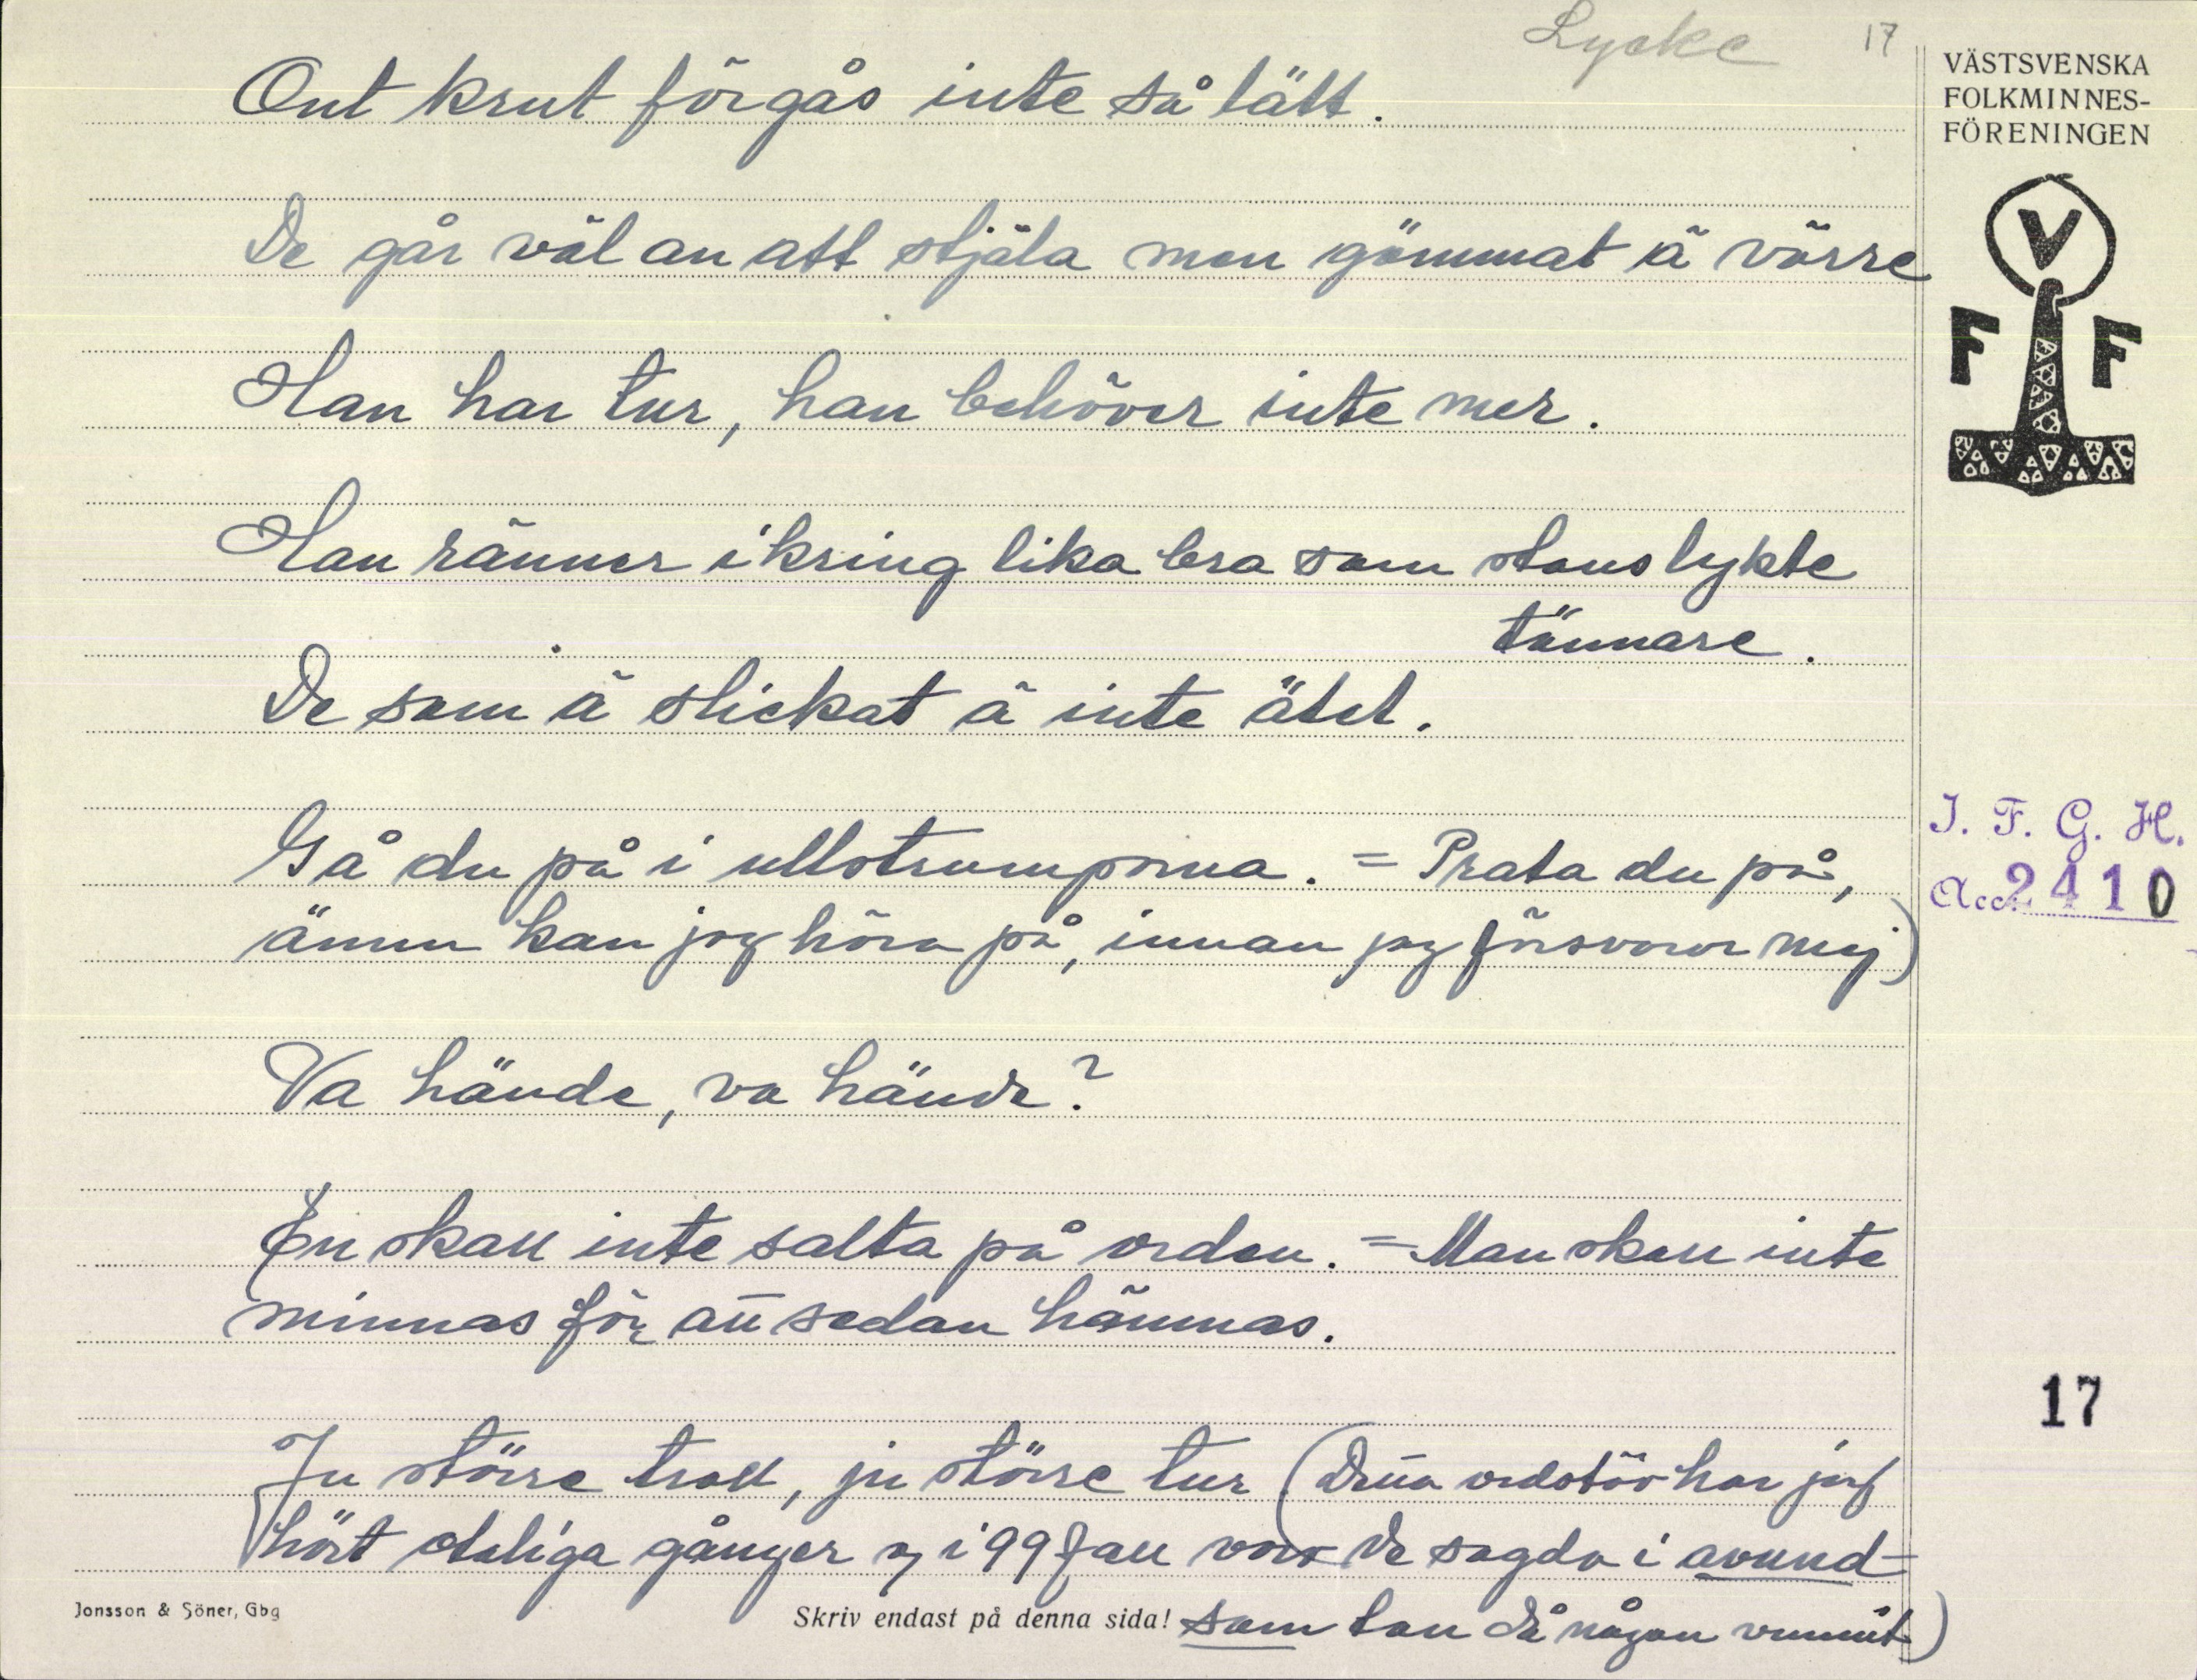 Lycke 17
Ont krut förgås inte så lätt.
De går väl an att stjäla men gömmat ä värre
Han har tur, han behöver inte mer.
Han ränner ikring lika bra som stans lykte
tännare.
De som ä slickat ä inte ätet.
Gå du på i ullstrumporna. = Prata du på,
ännu kan jag höra på, innan jag försvarar mej)
Va hände, va hände?
En skall inte salta på orden. = Man skall inte
minnas för att sedan hämnas.
Ju större troll, ju större tur (Denna ordstäv har jag
hört otaliga gånger o i 99 fall voro de sagda i avund-
som ton då någon vunnit)
VÄSTSVENSKA
FOLKMINNES-
FÖRENINGEN
V
F F
I. F. G. H.
Acc. 2410
17
Jonsson & Söner, Gbg
Skriv endast på denna sida!